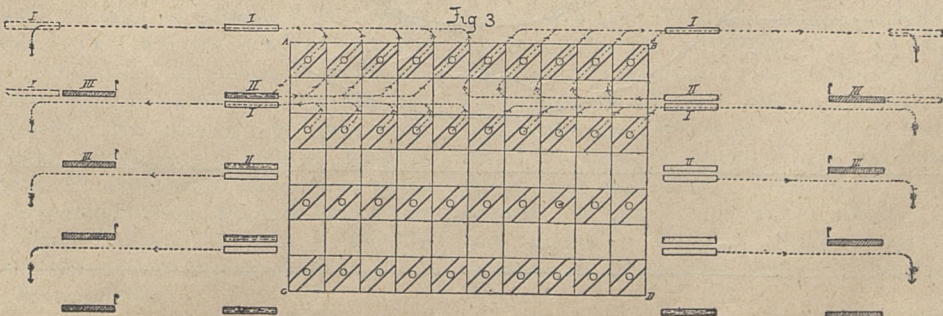 Fig 3
I I I I
A B
I III II II III
I I
III II II III
C D